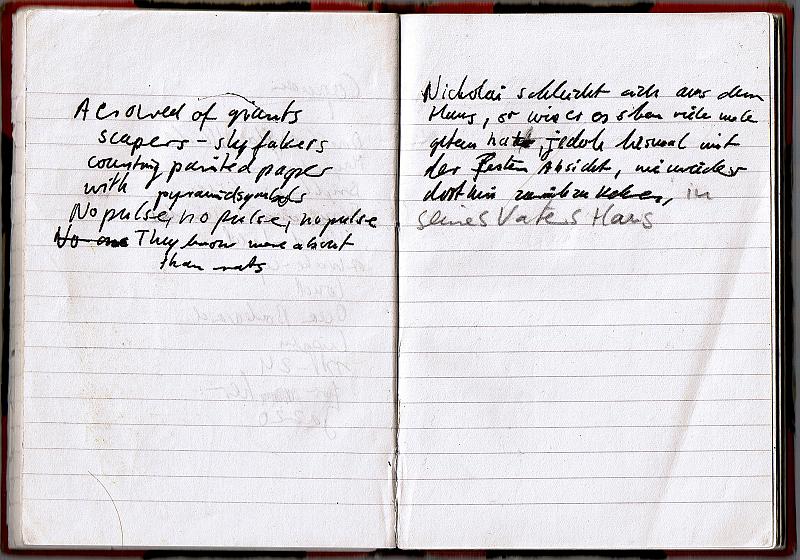 A crowd of giants
scapers - skyfakers
counting painted paper
with pyramidsymbols
No pulse, no pulse, no pulse
No one They know more about
than rats
Nickolai schleicht sich aus dem
Haus, so wie er es schon viele male
getan hatte, jedoch diesmal mit
der festen Absicht, nie wieder
dorthin zurückzukehren, in
seines Vaters Haus